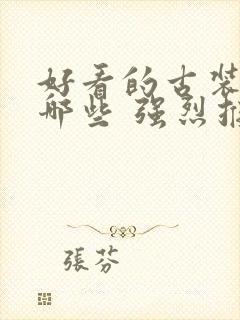 好看的古装
哪些 强烈推
張芬